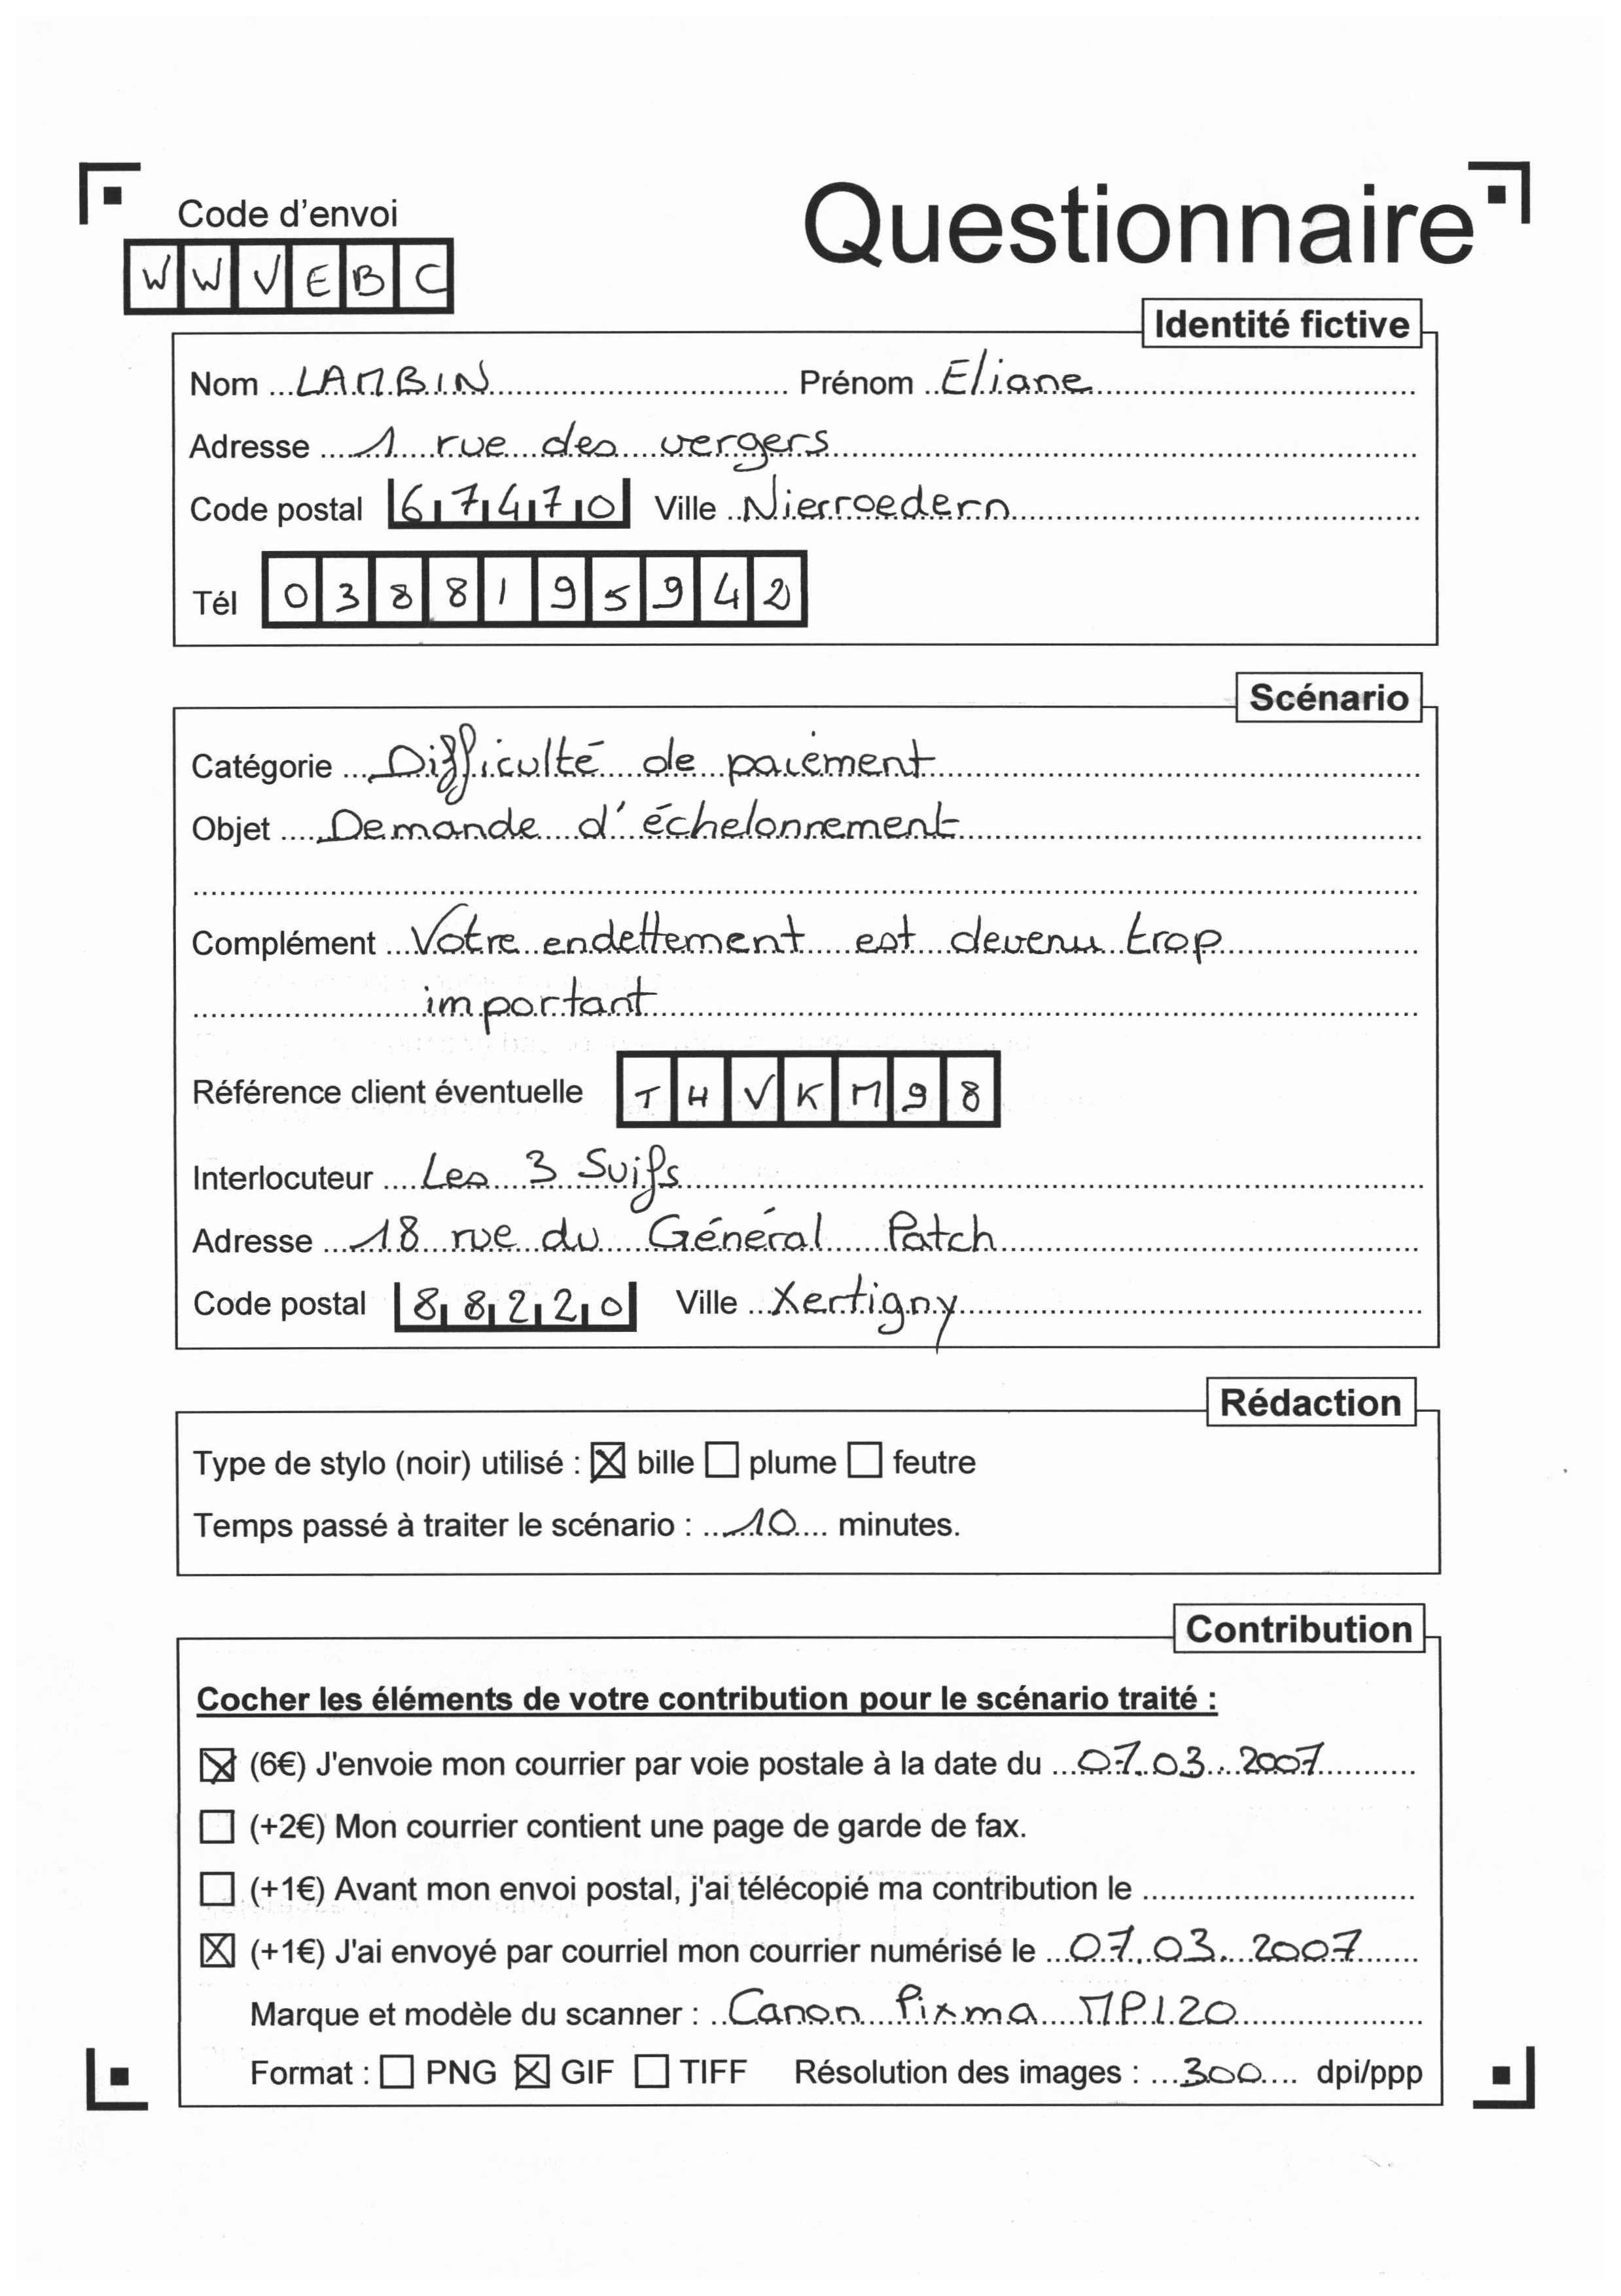 Code d'envoi
Questionnaire
WWVEBC
Identité fictive
Nom LAMBIN Prénom Eliane
Adresse 1 rue des vergers
Code postal 67470 Ville Nierroedern
Tél 0388195942
Scénario
Catégorie Difficulté de paiement
Objet Demande d'échelonnement
Complément Votre endettement est devenu trop
important
Référence client éventuelle THVKM98
Interlocuteur Les 3 Suifs
Adresse 18 rue du Général Patch
Code postal 88220 Ville Xertigny
Rédaction
Type de stylo (noir) utilisé : ☒ bille ☐ plume ☐ feutre
Temps passé à traiter le scénario : 10 minutes.
Contribution
Cocher les éléments de votre contribution pour le scénario traité :
☒ (6€) J'envoie mon courrier par voie postale à la date du 07.03.2007
☐ (+2€) Mon courrier contient une page de garde de fax.
☐ (+1€) Avant mon envoi postal, j'ai télécopié ma contribution le
☒ (+1€) J'ai envoyé par courriel mon courrier numérisé le 07.03.2007
Marque et modèle du scanner : Canon Pixma MP120
Format : ☐ PNG ☒ GIF ☐ TIFF Résolution des images : 300 dpi/ppp